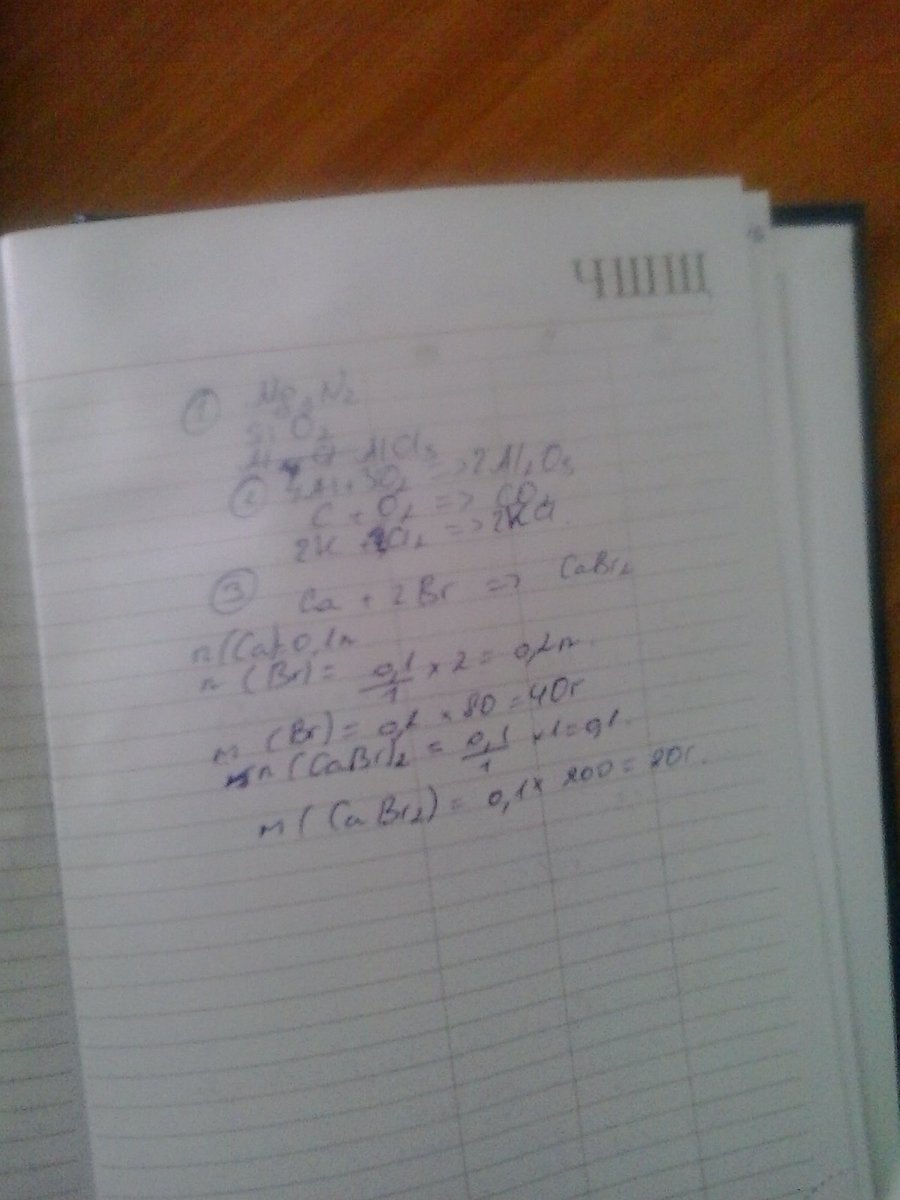 ЧШЩ
① Mg3N2
SiO2
AlCl3
② 4Al + 3O2 => 2Al2O3
C + O2 => CO2
2K + Cl2 => 2KCl
③ Ca + 2Br => CaBr2
n(Ca)=0,1n
n(Br) = 0,1/1 × 2 = 0,2n.
m(Br) = 0,2 × 80 = 40г
n(CaBr)2 = 0,1/1 × 1 = 0,1.
m(CaBr2) = 0,1 × 200 = 20г.